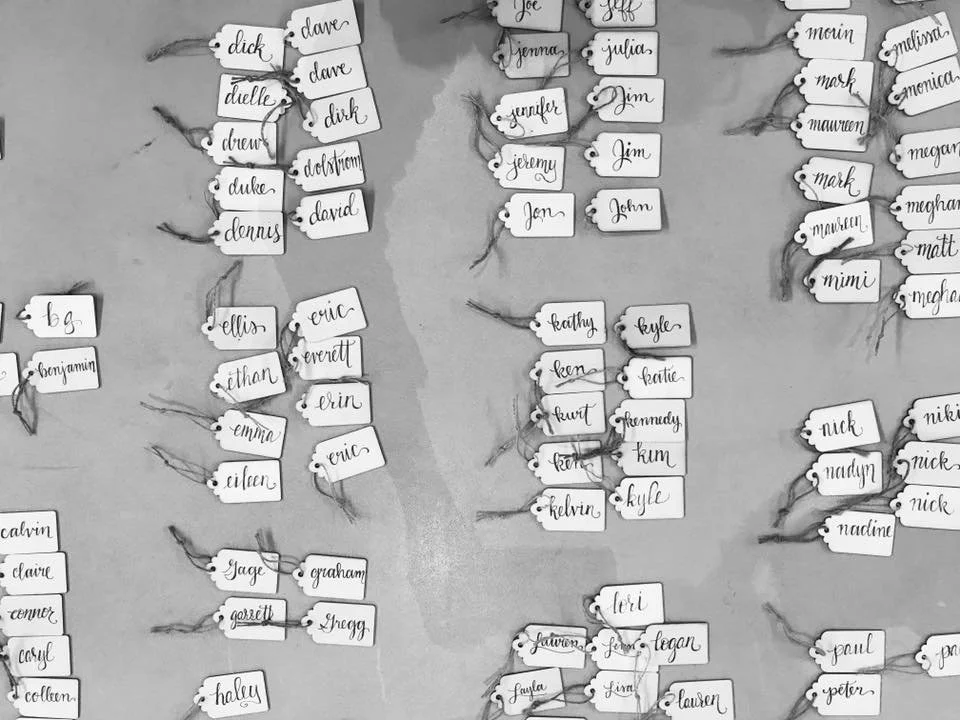 dick
dave
dave
dielle
dirk
drew
dolstrom
duke
david
dennis
Joe
Jeff
jenna
julia
jennifer
Jim
jeremy
Jim
Jon
John
morin
melissa
mark
monica
maureen
megan
mark
megha
maureen
matt
mimi
megha
bg
benjamin
ellis
eric
everett
ethan
erin
emma
eric
eileen
kathy
kyle
ken
katie
kurt
kennedy
ken
kim
kelvin
kyle
nick
niki
nadyn
nick
nick
nadine
calvin
claire
connor
caryl
colleen
Gage
graham
garrett
Gregg
haley
lori
Lauren
Logan
Layla
Lisa
lauren
paul
pa
peter